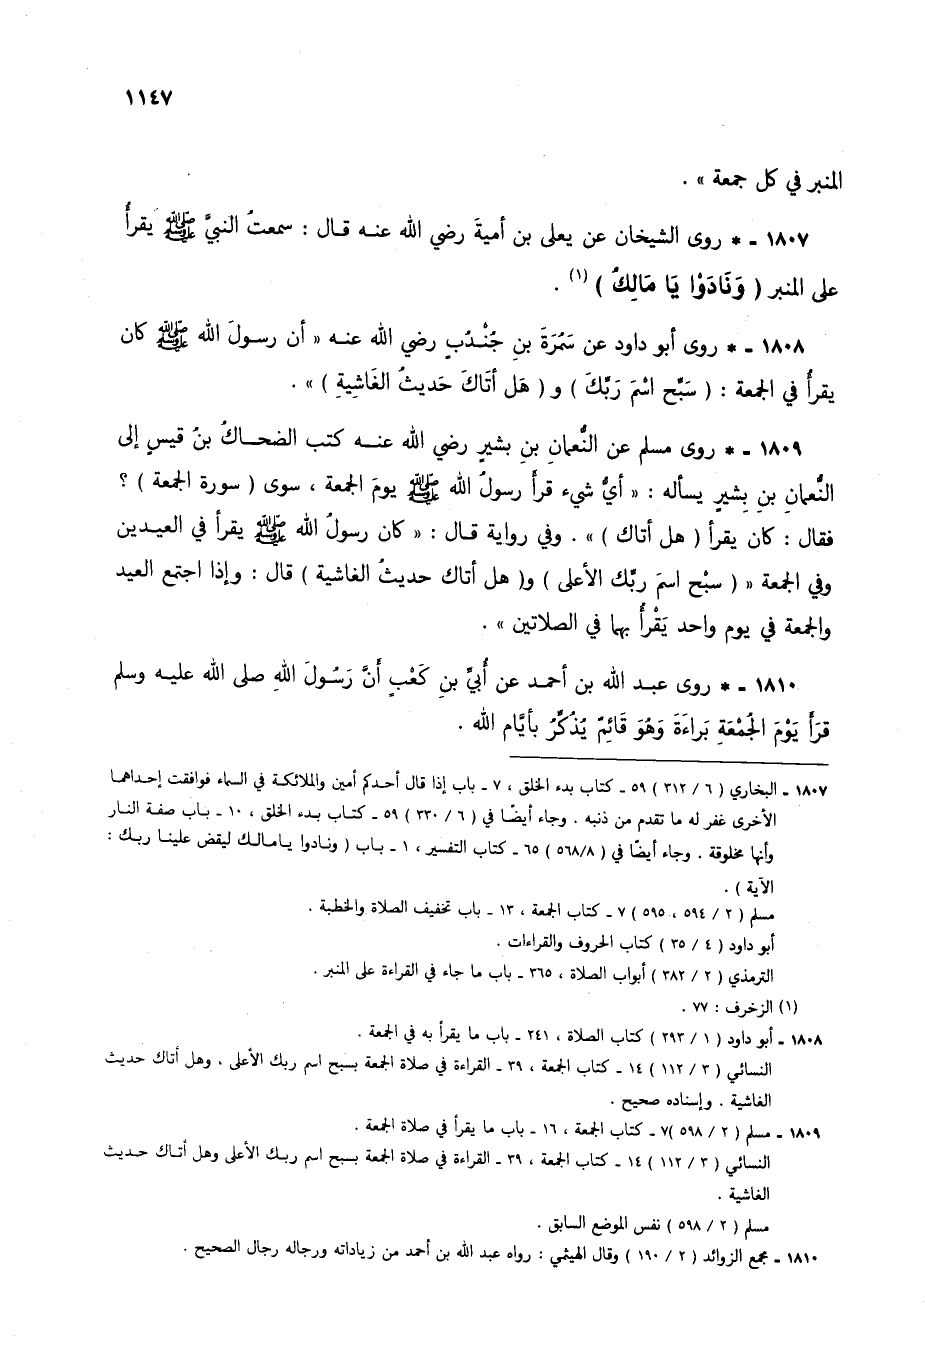 ١١٤٧
المنبر في كل جمعة » .
١٨٠٧ ـ * روى الشيخان عن يعلى بن أمية رضي الله عنـه قـال : سمعتُ النبيَّ ﷺ يقرأُ
على المنبر ( وَنَادَوْا يَا مَالِكُ ) (١) .
١٨٠٨ ـ * روى أبو داود عن سَمُرَةَ بنِ جُنْـدُبٍ رضي الله عنـه « أن رسـولَ الله ﷺ كان
يقرأُ في الجمعة : ( سَبِّح اسْمَ رَبِّكَ ) و ( هَل أتَاكَ حَديثُ الغَاشِيةِ ) » .
١٨٠٩ ـ * روى مسلم عن النُّعمانِ بنِ بشيرٍ رضي الله عنـه كتب الضحـاكُ بنُ قيسٍ إلى
النُّعمانِ بنِ بشيرٍ يسأله : « أيُّ شيء قرأ رسولُ الله ﷺ يومَ الجمعة ، سوى ( سورة الجمعة ) ؟
فقال : كان يقرأ ( هل أتاك ) » . وفي رواية قـال : « كان رسولُ الله ﷺ يقرأ في العيـدين
وفي الجمعة « ( سبْح اسمَ ربِّك الأعلى ) و( هل أتاك حديثُ الغاشية ) قال : وإذا اجتمع العيد
والجمعة في يوم واحد يَقْرأُ بهما في الصلاتين » .
١٨١٠ ـ * روى عبـد الله بن أحمـد عن أُبيِّ بنِ كَعْبٍ أنَّ رَسُولَ اللهِ صلى الله عليـه وسلم
قرَأ يَوْمَ الجُمْعَةِ بَراءَةَ وَهُوَ قَائِمٌ يُذكِّرُ بأيَّام الله .
١٨٠٧ ـ البخاري ( ٦ / ٣١٢ ) ٥٩ ـ كتاب بدء الخلق ، ٧ ـ باب إذا قال أحـدكم أمين والملائكـة في السماء فوافقت إحـداهمـا
الأخرى غفر له ما تقدم من ذنبه . وجاء أيضًـا في ( ٦ / ٣٣٠ ) ٥٩ ـ كتـاب بـدء الخلق ، ١٠ ـ بـاب صفـة النـار
وأنها مخلوقة . وجاء أيضًا في ( ٥٦٨/٨ ) ٦٥ ـ كتاب التفسير ، ١ ـ بـاب ( ونادوا يـامـالـك ليقض علينـا ربـك :
الآية ) .
مسلم ( ٢ / ٥٩٤ ، ٥٩٥ ) ٧ ـ كتاب الجمعة ، ١٣ ـ باب تخفيف الصلاة والخطبة .
أبو داود ( ٤ / ٣٥ ) كتاب الحروف والقراءات .
الترمذي ( ٢ / ٣٨٢ ) أبواب الصلاة ، ٣٦٥ ـ باب ما جاء في القراءة على المنبر .
(١) الزخرف : ٧٧ .
١٨٠٨ ـ أبو داود ( ١ / ٢٩٣ ) كتاب الصلاة ، ٢٤١ ـ باب ما يقرأ به في الجمعة .
النسائي ( ٣ / ١١٢ ) ١٤ ـ كتاب الجمعة ، ٣٩ ـ القراءة في صلاة الجمعة بـسبح اسم ربك الأعلى ، وهل أتاك حديث
الغاشية . وإسناده صحيح .
١٨٠٩ ـ مسلم ( ٢ / ٥٩٨ )٧ ـ كتاب الجمعة ، ١٦ ـ باب ما يقرأ في صلاة الجمعة .
النسائي ( ٣ / ١١٢ ) ١٤ ـ كتاب الجمعة ، ٣٩ ـ القراءة في صلاة الجمعة بـسبح اسم ربـك الأعلى وهل أتـاك حـديث
الغاشية .
مسلم ( ٢ / ٥٩٨ ) نفس الموضع السابق .
١٨١٠ ـ مجمع الزوائد ( ٢ / ١٩٠ ) وقال الهيثمي : رواه عبد الله بن أحمد من زياداته ورجاله رجال الصحيح .